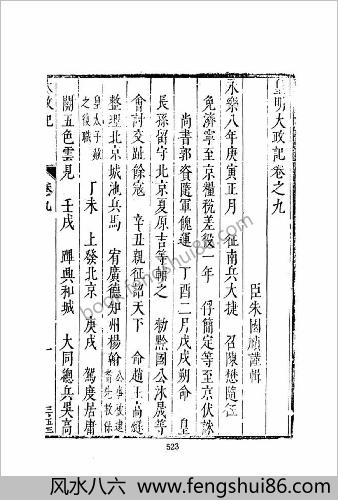 皇明大政記卷之九
臣朱國禎謹輯
永樂八年庚寅正月 征南兵大捷 召陳懋隨征
免濟寧至京糧稅差役一年 俘簡定等至京伏誅
尚書郭資隨軍餽運 丁酉二月戊戌朔命 皇
長孫留守北京夏原吉等輔之 勑黔國公沐晟等
會討交趾餘寇 辛丑親征詔天下 命趙王高燧
整理北京城池兵馬 宥廣德知州楊翰
皇太子
之復職 丁未 上發北京 庚戌 駕度居庸
關五色雲見 壬戌 躧興和城 大同總兵吳高
大政記
卷九
一
523
book.fengshui86.com
风水八六 www.fengshui86.com